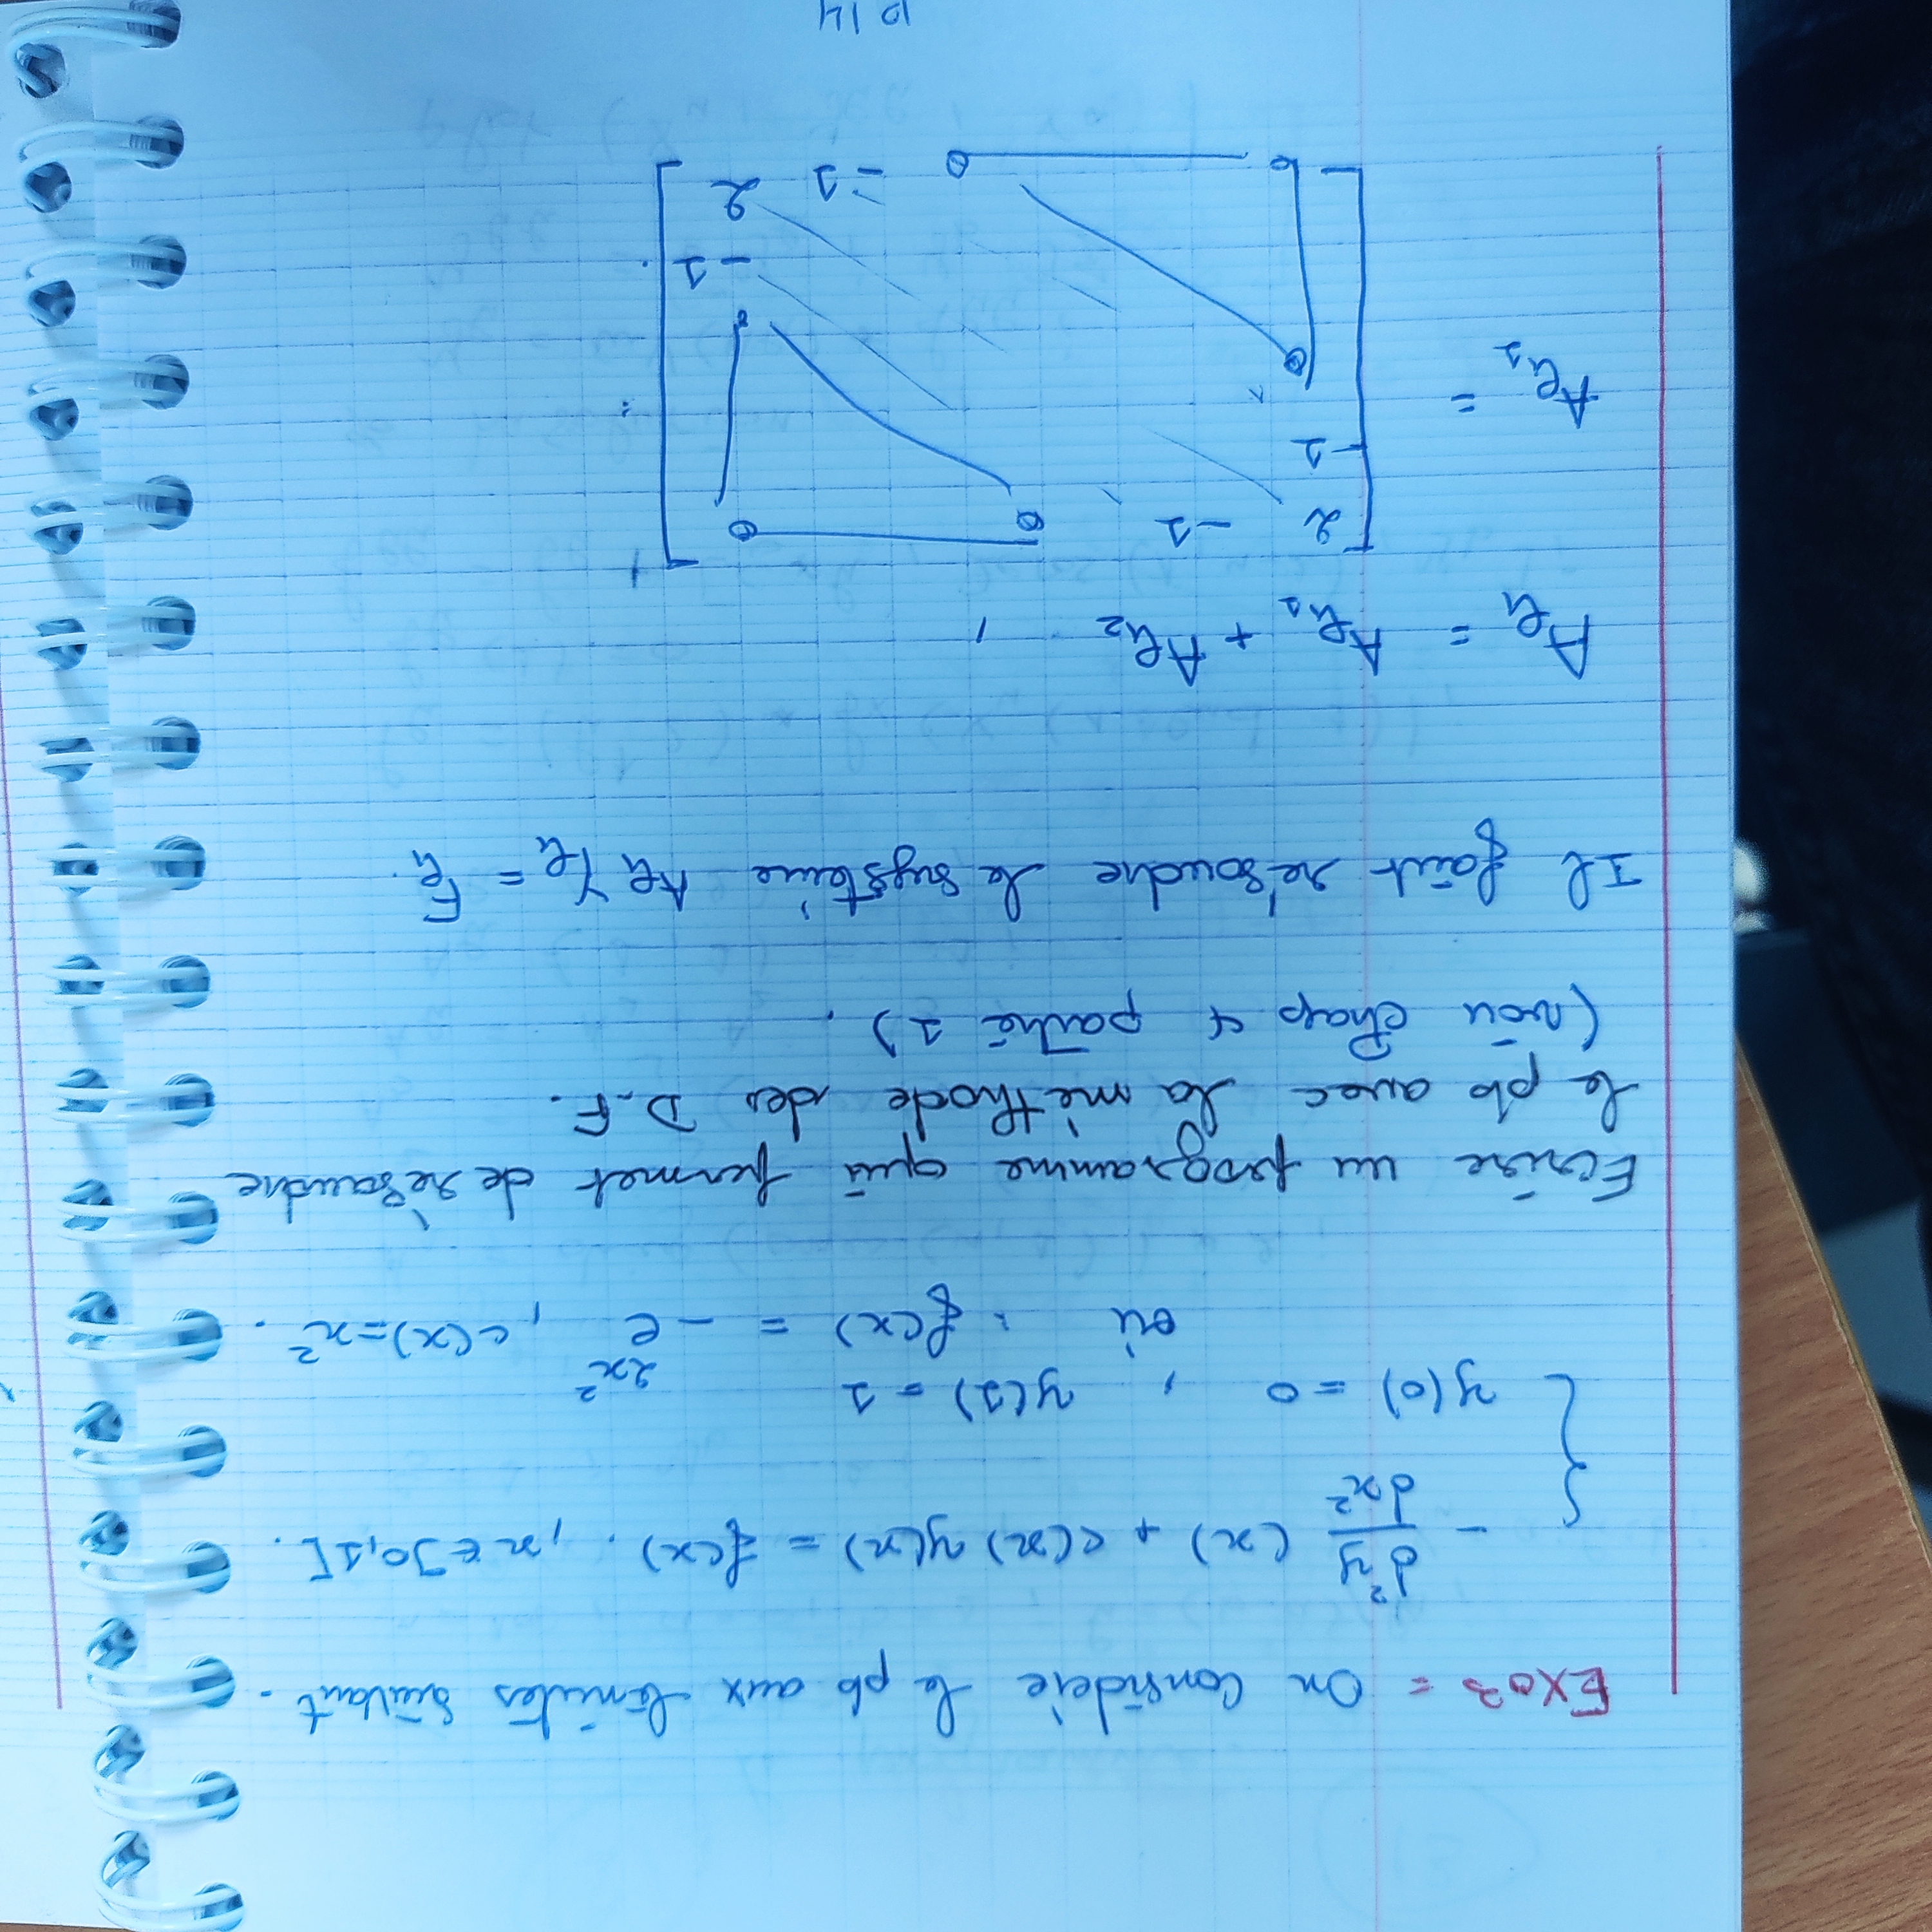 EXO3 = On Considère le pb aux limites suivant.
- d²y/dx² (x) + c(x) y(x) = f(x). , x ∈ ]0,1[.
y(0) = 0 , y(1) = 1
où : f(x) = - e^{2x²} , c(x) = x².
Ecrire un programme qui permet de rèsoudre
le pb avec la mèthode des D.F.
(voir chap 4 partie 1).
Il faut résoudre le système A_h Y_h = F_h.
A_h = A_{h1} + A_{h2} ,
2 -1 0 0
-1
A_{h1} =
0
0
-1
0 0 -1 2
P14